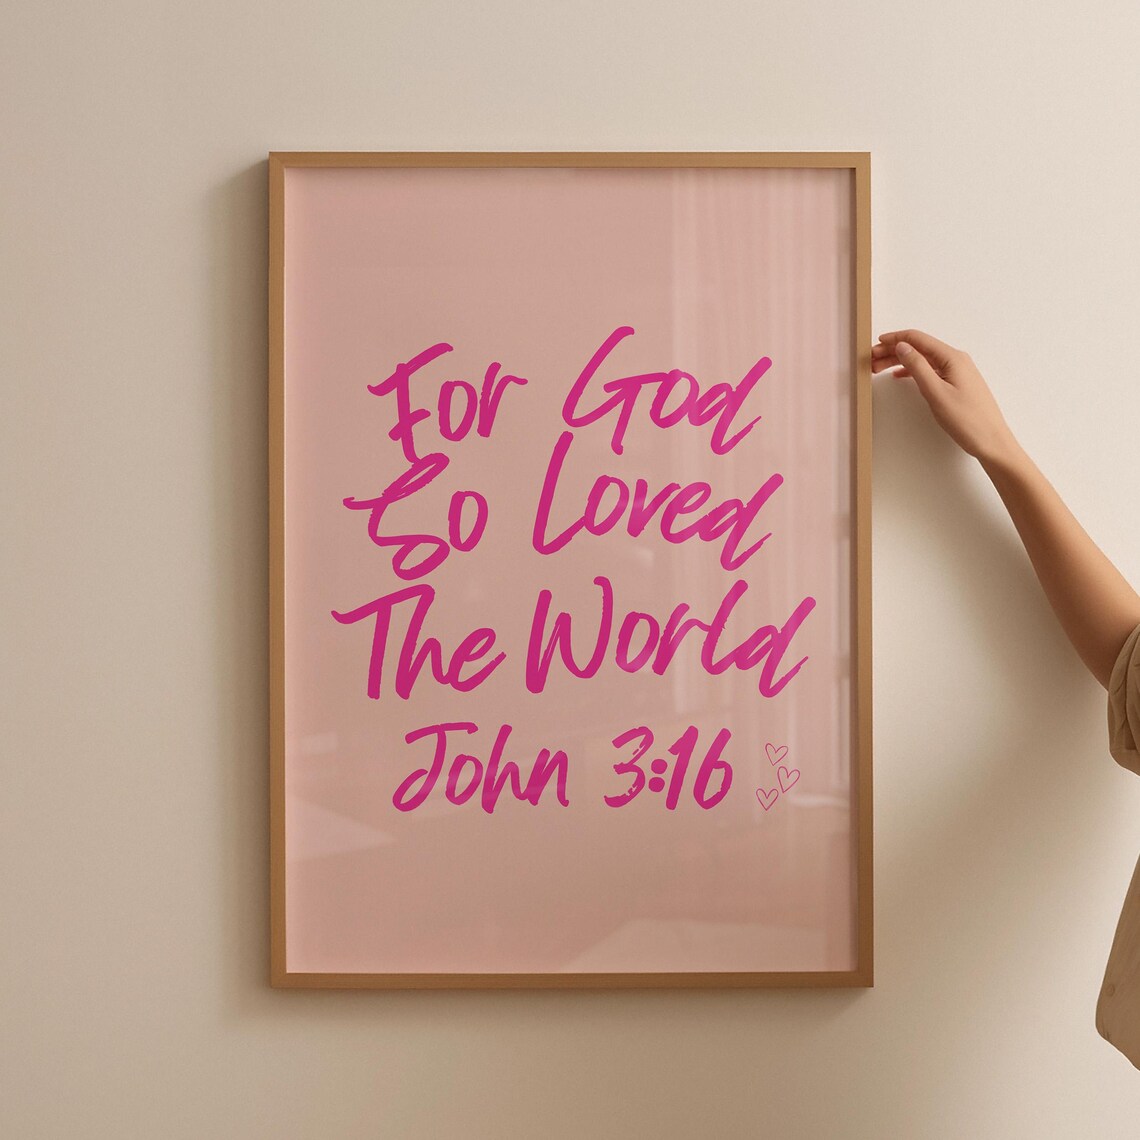 For God
So Loved
The World
John 3:16